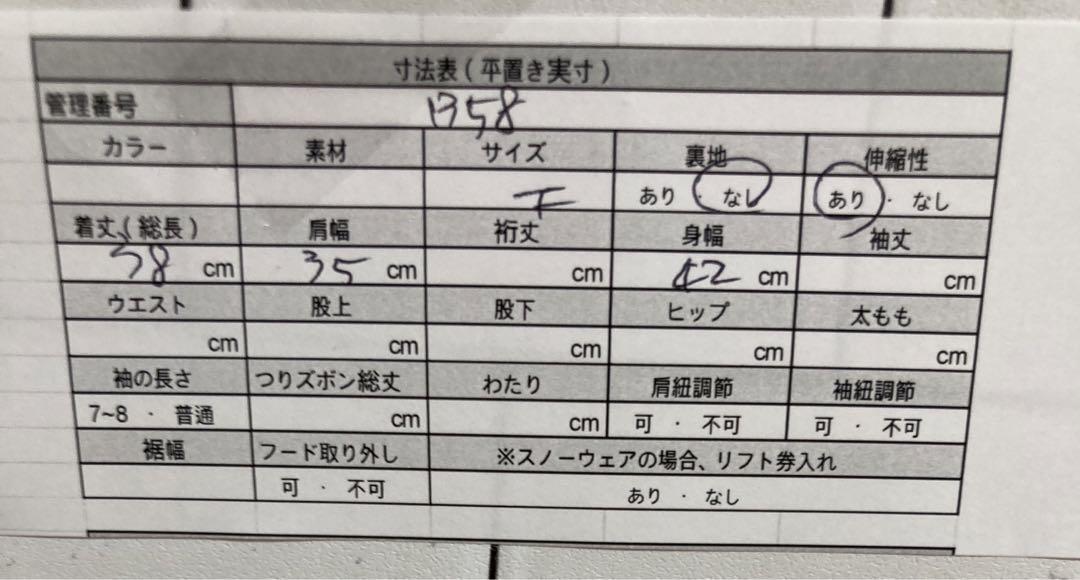 寸法表(平置き実寸)
管理番号 B58
カラー 素材 サイズ 裏地 伸縮性
F あり なし あり・なし
着丈(総長) 肩幅 裄丈 身幅 袖丈
58 cm 35 cm cm 42 cm cm
ウエスト 股上 股下 ヒップ 太もも
cm cm cm cm cm
袖の長さ つりズボン総丈 わたり 肩紐調節 袖紐調節
7~8 ・ 普通 cm cm 可 ・ 不可 可 ・ 不可
裾幅 フード取り外し ※スノーウェアの場合、リフト券入れ
可 ・ 不可 あり ・ なし